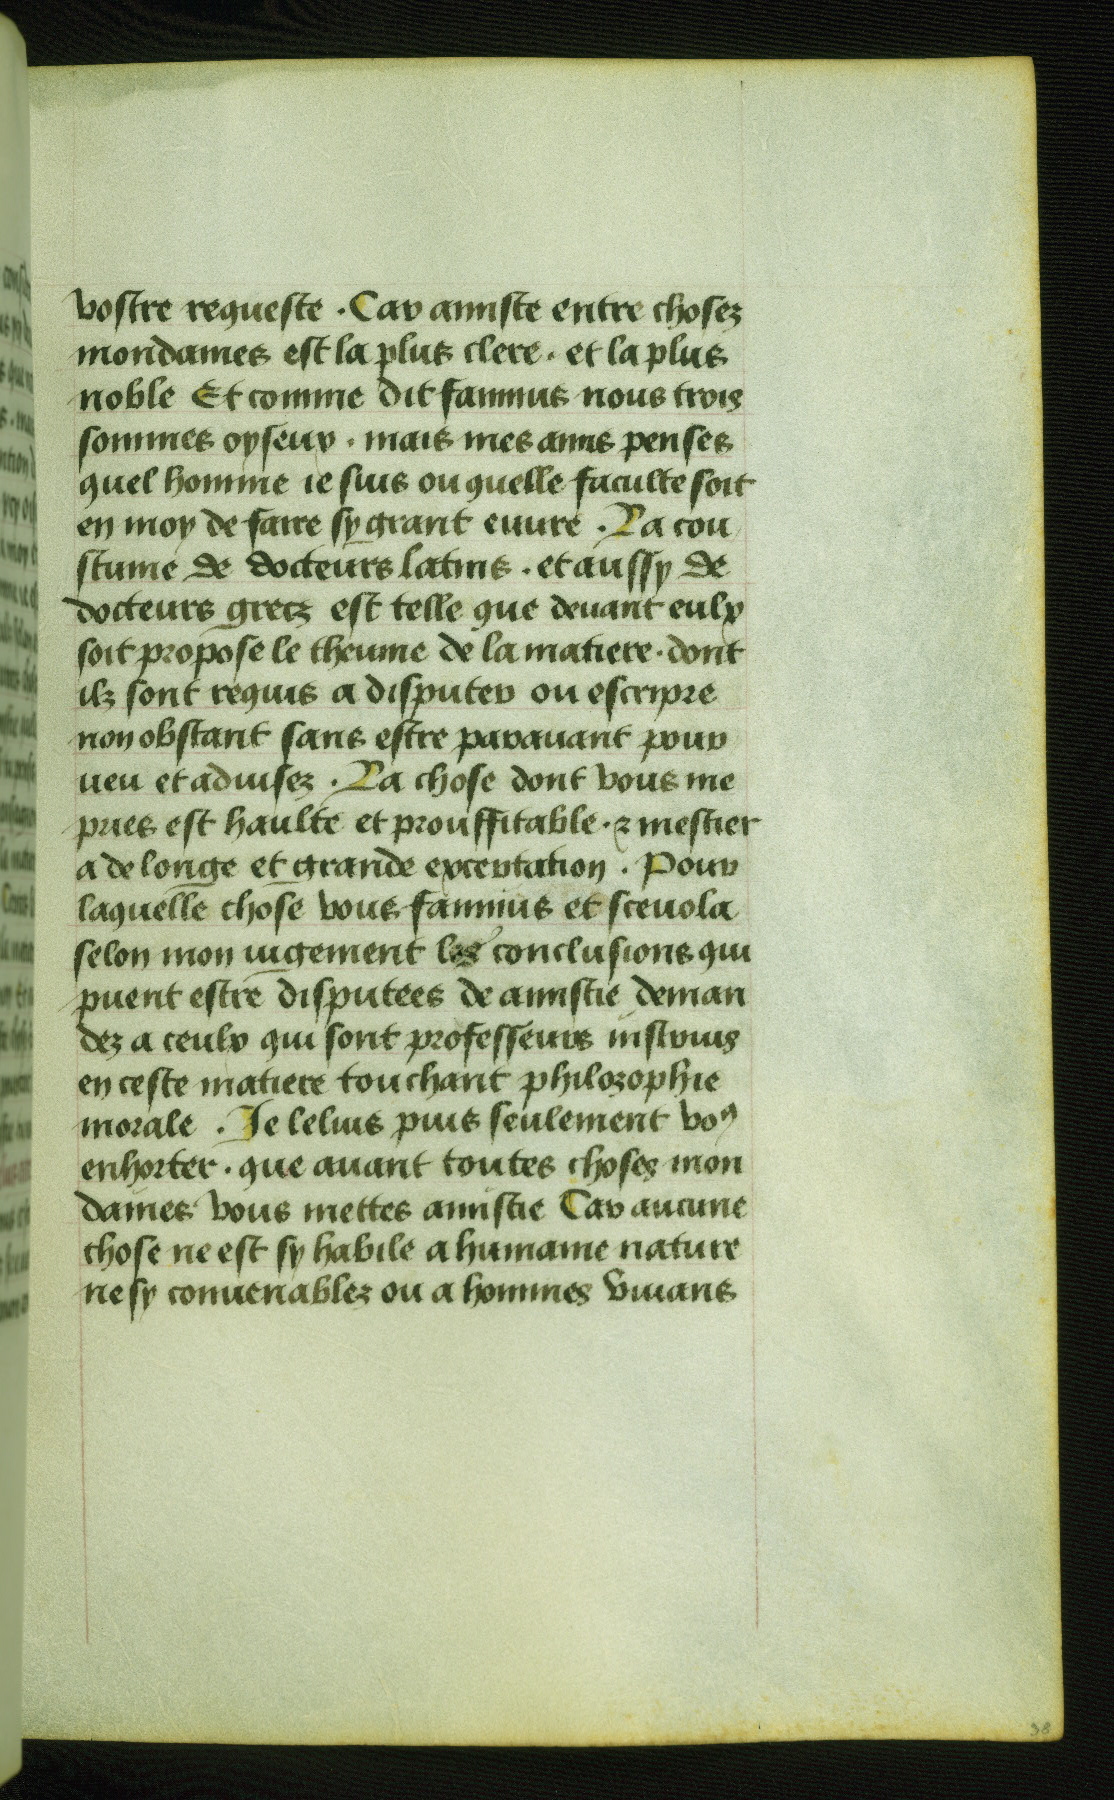 vostre requeste . Car amiste entre chosez
mondaines est la plus clere . et la plus
noble Et comme dit fannius nous trois
sommes oyseux . mais mes amis penses
quel homme ie suis ou quelle faculte soit
en moy de faire sy grant euure . La cou
stume de docteurs latins . et aussy de
docteurs grecz est telle que deuant eulx
soit propose le theume de la matiere . dont
ilz sont requis a disputer ou escripre
non obstant sans estre parauant pour
ueu et aduisez . La chose dont vous me
pries est haulte et prouffitable . ⁊ mestier
a de longe et grande excertation . Pour
laquelle chose vous fannius et sceuola
selon mon iugement les conclusions qui
puent estre disputees de amistie deman
dez a ceulx qui sont professeurs instruis
en ceste matiere touchant philozophie
morale . Je lelius puis seulement voꝰ
enhorter . que auant toutes choses mon
daines vous mettes amistie Car aucune
chose ne est sy habile a humaine nature
ne sy conuenablez ou a hommes viuans
38